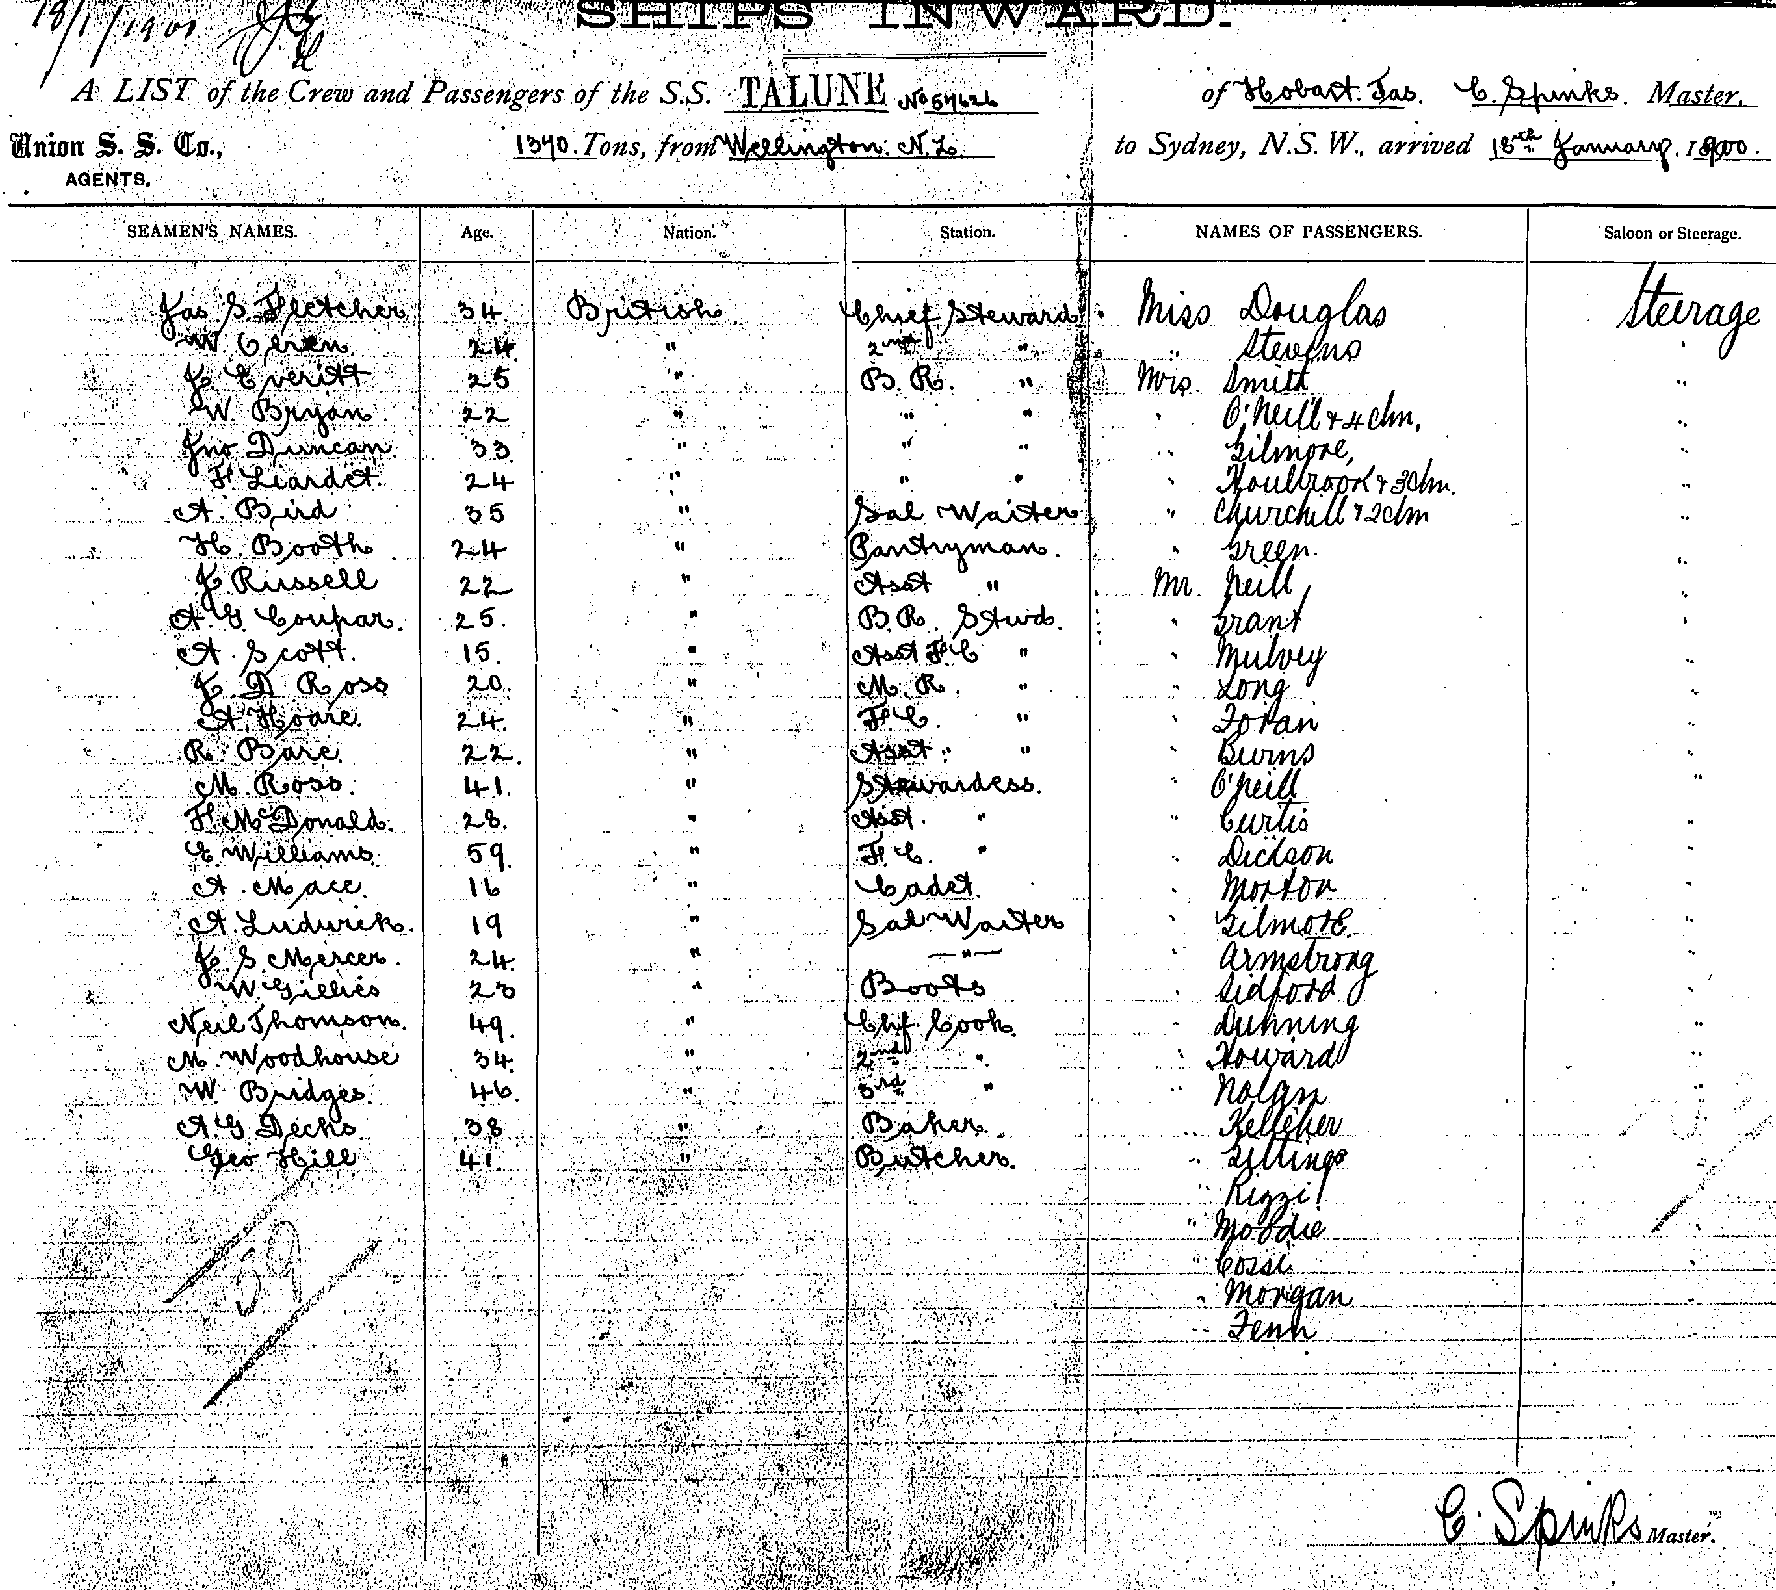 18/1/1900
SHIPS INWARD.
A LIST of the Crew and Passengers of the S.S. TALUNE No 57626 of Hobart. Tas. C. Spinks. Master.
Union S. S. Co., AGENTS. 1370. Tons, from Wellington. N.Z. to Sydney, N.S.W., arrived 18th January, 1900.
SEAMEN'S NAMES. Age. Nation. Station. NAMES OF PASSENGERS. Saloon or Steerage.
Jas S. Fletcher 34. British Chief Steward Miss Douglas Steerage
W 24 " 2nd " " Stevens "
J. Everitt 25 " B. R. " Mrs. Smith "
W. Bryan 22 " " " " O'Neill & 4 chn. "
Jno Duncan 33 " " " " Gilmore, "
F. Liardet. 24 " " " " Houlbrook & 3 chn. "
A. Bird 35 " Sal Waiter " Churchill & 2 chn "
H. Booth 24 " Pantryman. " Green. "
J. Russell 22 " Asst " Mr. Neill "
A. G. Coupar. 25. " B.R. Stwd. " Grant "
A. Scott. 15. " Asst F.C " " Mulvey "
J. D. Ross 20. " M. R. " " Long "
A. Hoare. 24. " F.C. " " Foran "
R. Bare. 22. " Asst. " " " Burns "
M. Ross. 41. " Stewardess. " O'Neill "
F. McDonald. 28. " Asst. " " Curtis "
E. Williams. 59. " F. C. " " Dickson "
A. Mace. 16 " Cadet. " Morton "
A. Ludwick. 19 " Sal Waiter " Gilmore. "
J. S. Mercer. 24. " —"— " Armstrong "
W. Gillies 23 " Boots " Sidford "
Neil Thomson. 49. " Chf. Cook. " Dunning "
M. Woodhouse 34. " 2nd " " Howard "
W. Bridges. 46. " 3rd " " Nolan "
A. G. Decks 38 " Baker. " Kelleher "
Geo Hill 41. " Butcher. " Gittings
" Rizzi
" Moodie
59 " Cossi
" Morgan
" Fenn
C. Spinks Master.